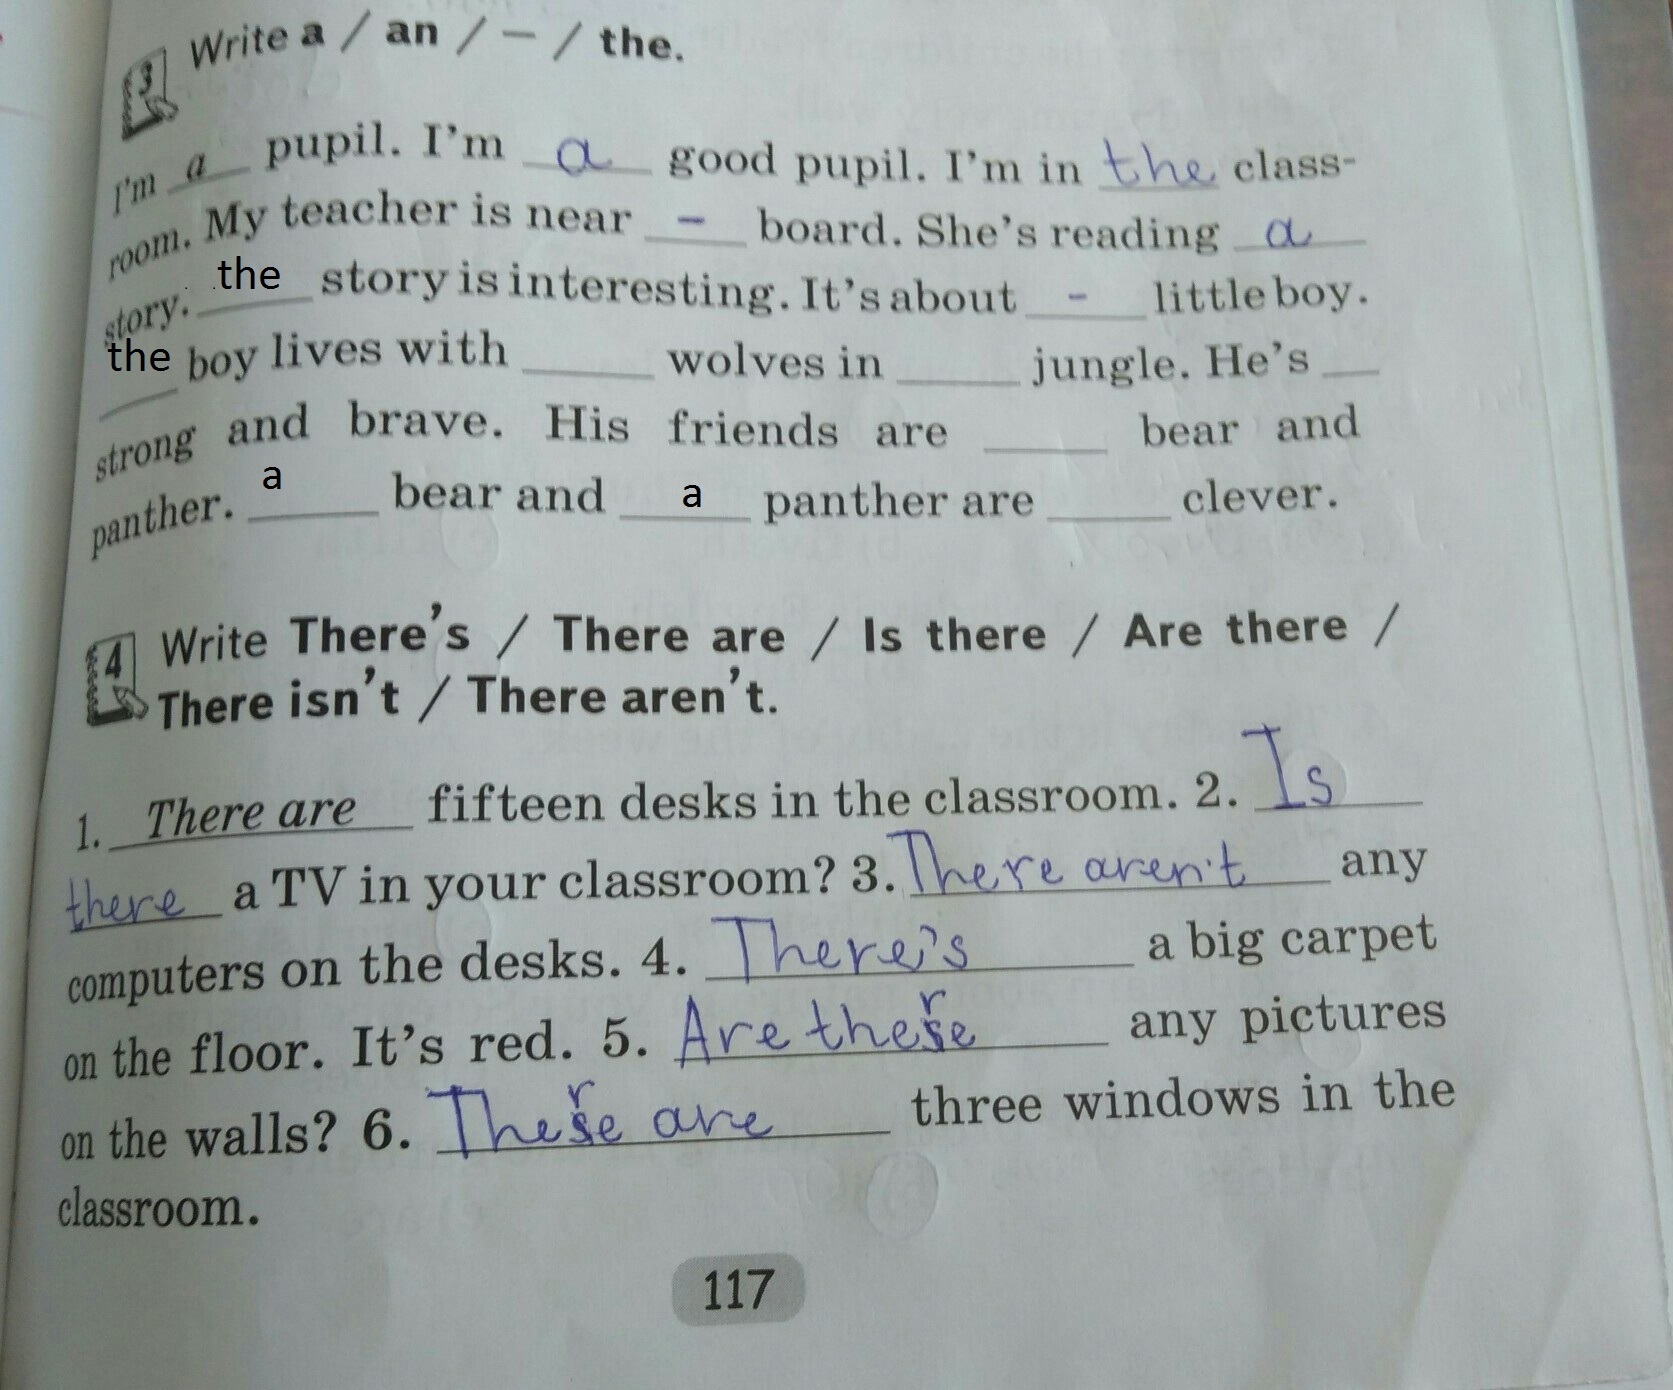 3 Write a / an / – / the.
I'm a pupil. I'm a good pupil. I'm in the class-
room. My teacher is near - board. She's reading a
story. the story is interesting. It's about - little boy.
the boy lives with ____ wolves in ____ jungle. He's __
strong and brave. His friends are ____ bear and
panther. a bear and a panther are ____ clever.
4 Write There's / There are / Is there / Are there /
There isn't / There aren't.
1. There are fifteen desks in the classroom. 2. Is
there a TV in your classroom? 3. There aren't any
computers on the desks. 4. There's a big carpet
on the floor. It's red. 5. Are there any pictures
on the walls? 6. There are three windows in the
classroom.
117